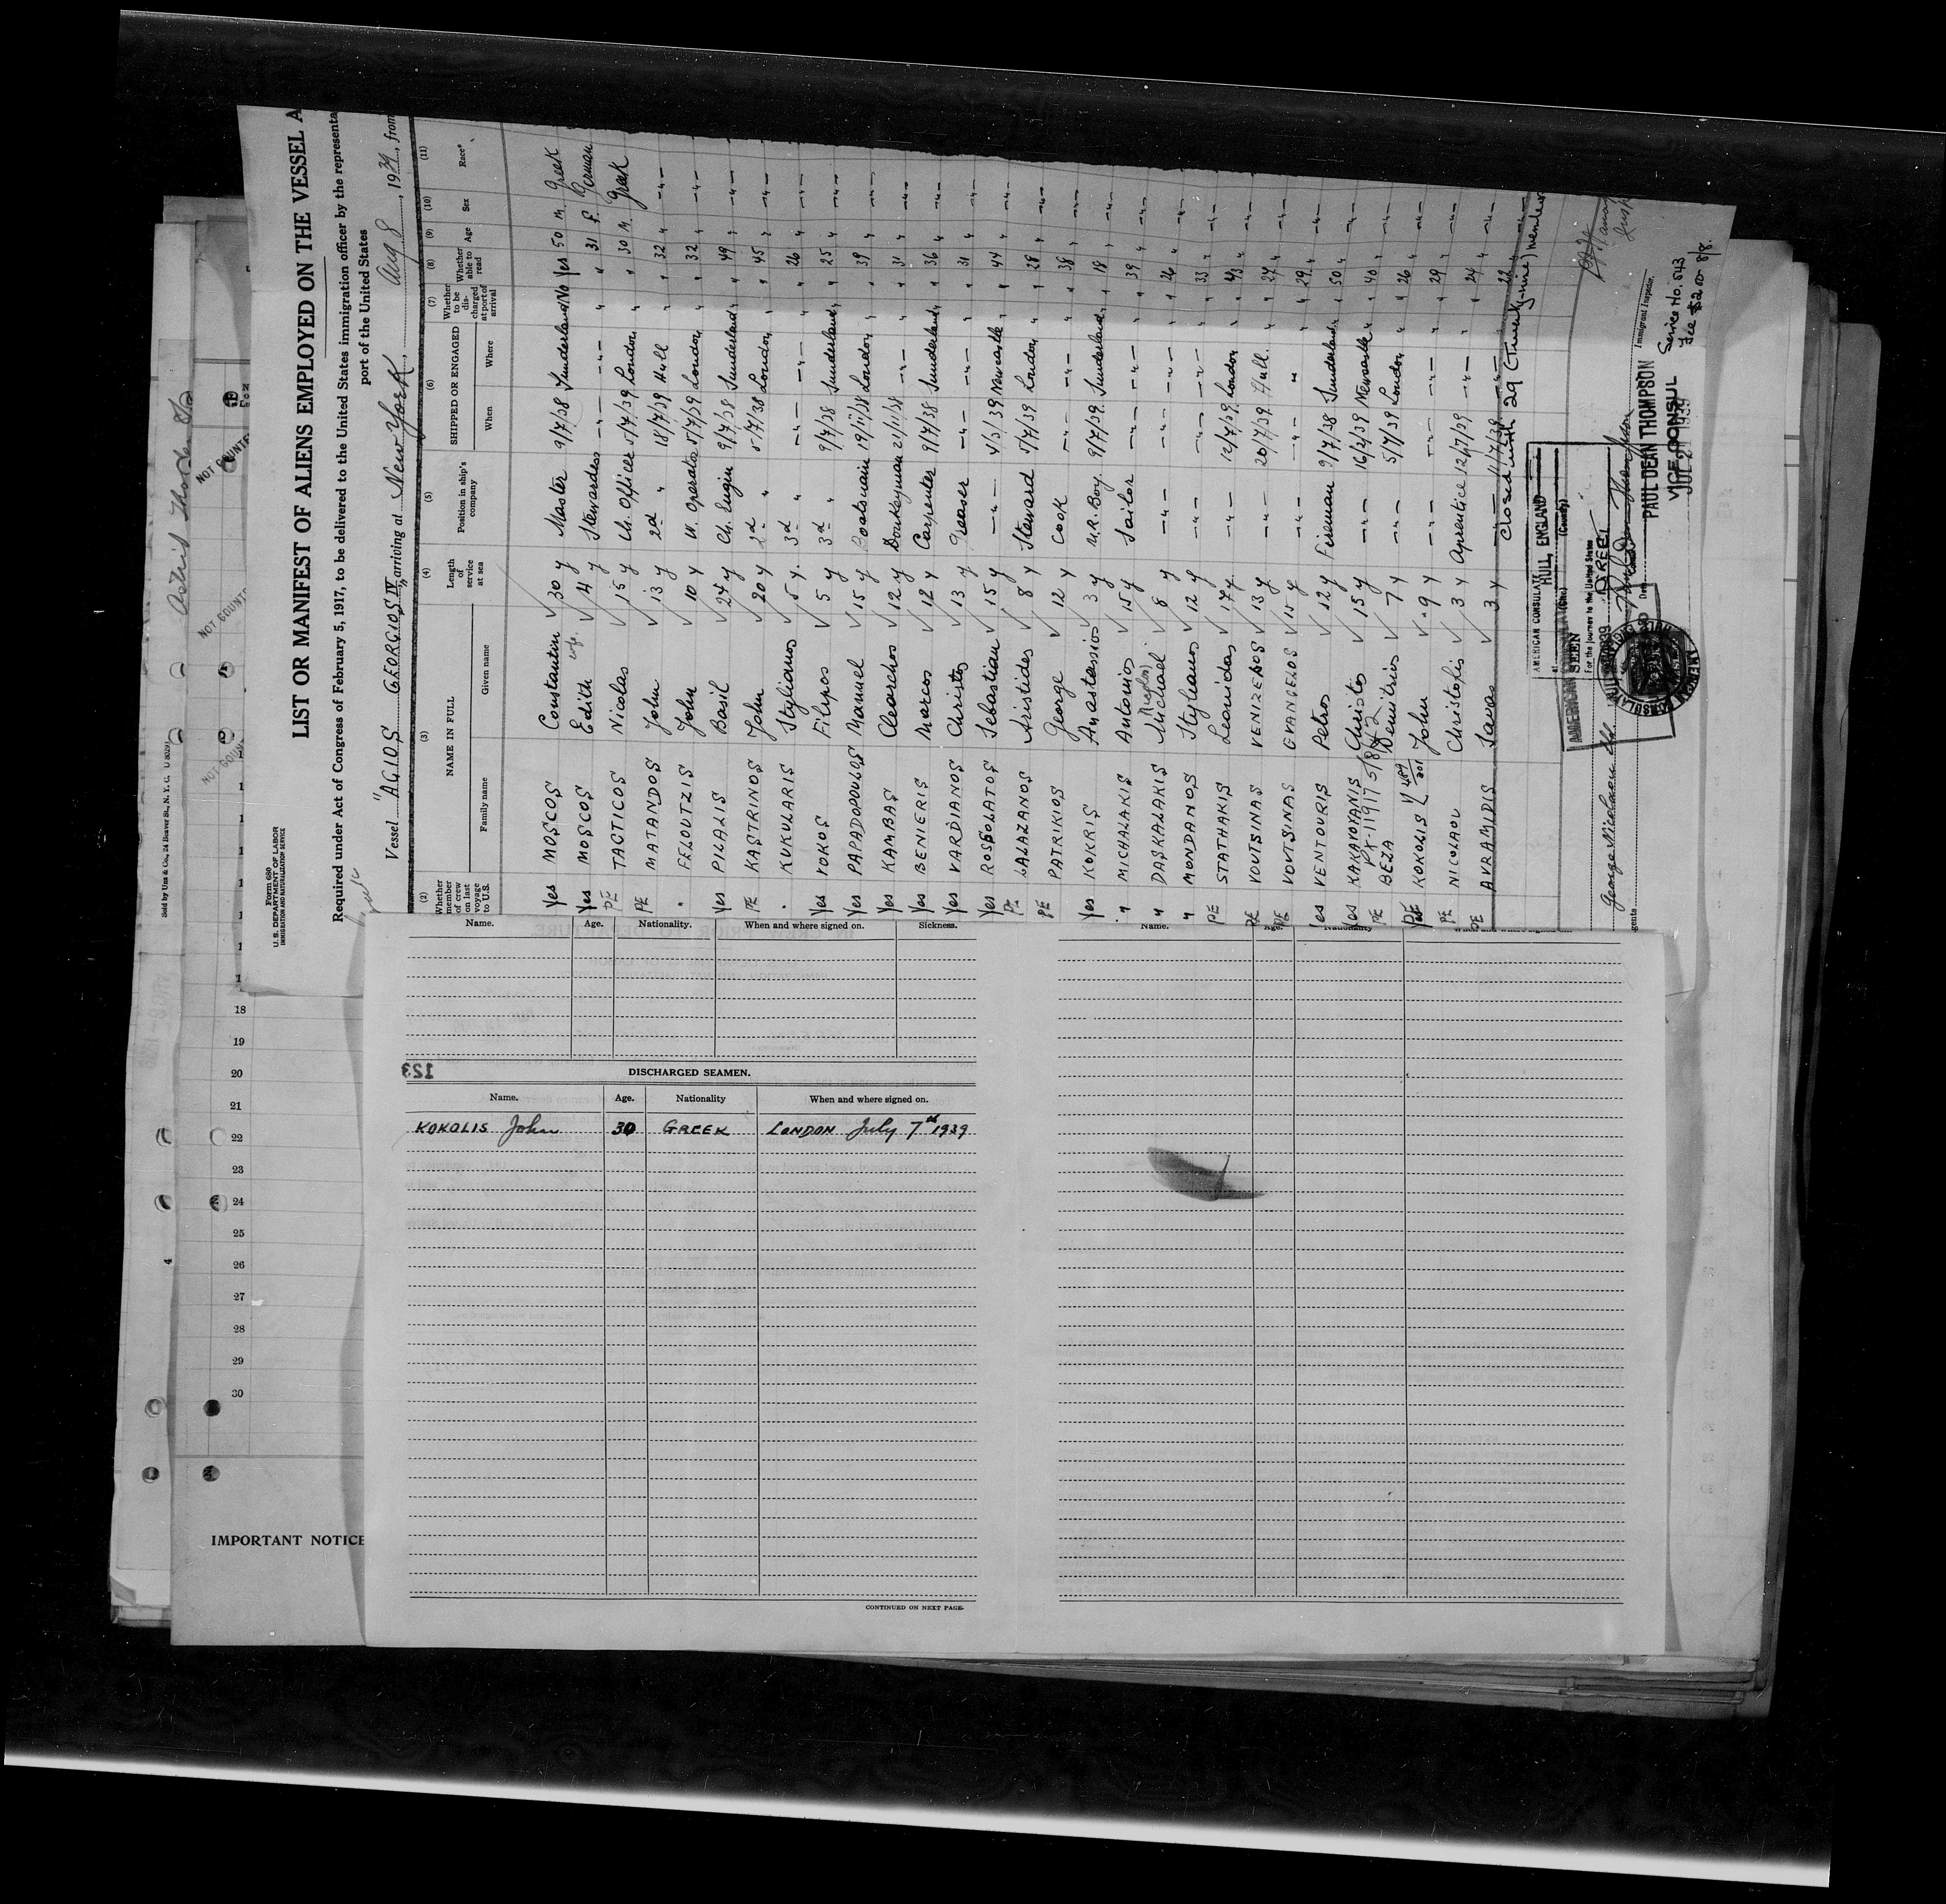 Form 680
U. S. DEPARTMENT OF LABOR
IMMIGRATION AND NATURALIZATION SERVICE
LIST OR MANIFEST OF ALIENS EMPLOYED ON THE VESSEL A
Required under Act of Congress of February 5, 1917, to be delivered to the United States immigration officer by the representa
port of the United States
Vessel "AGIOS GEORGIOS IV" arriving at New York, Aug 8, 1939, from
(2) (3) (4) (5) (6) (7) (8) (9) (10) (11)
Whether member of crew on last voyage to U.S. NAME IN FULL Family name Given name Length of service at sea Position in ship's company SHIPPED OR ENGAGED When Where Whether to be discharged at port of arrival Whether able to read Age Sex Race*
Yes MOSCOS Constantin 30 y Master 9/7/38 Sunderland No Yes 50 M. Greek
Yes MOSCOS Edith wife 4 y Stewardess -"- -"- " " 31 F. German
PE TACTICOS Nicolas 15 y Ch. Officer 5/7/39 London " " 30 M. Greek
PE MATANDOS John 13 y 2d " 18/7/39 Hull " " 32 " -"-
" FELOUTZIS John 10 y W. Operator 5/7/39 London " " 32 " -"-
Yes PILALIS Basil 24 y Ch. Engin 9/7/38 Sunderland " " 49 " -"-
PE KASTRINOS John 20 y 2d " 5/7/38 London " " 45 " -"-
" KUKULARIS Stylianos 5 y. 3d " -"- -"- " " 26 " -"-
Yes VOKOS Filipos 5 y 3d " 9/7/38 Sunderland " " 25 " -"-
Yes PAPADOPOULOS Manuel 15 y Boatswain 19/11/38 London " " 39 " -"-
Yes KAMBAS Clearchos 12 y Donkeyman 21/11/38 -"- " " 31 " -"-
Yes BENIERIS Marcos 12 y Carpenter 9/7/38 Sunderland " " 36 " -"-
Yes VARDIANOS Christos 13 y Greaser -"- -"- " " 31 " -"-
Yes ROSSOLATOS Sebastian 15 y -"- 4/3/39 Newcastle " " 44 " -"-
PE LALAZANOS Aristides 8 y Steward 5/7/39 London " " 28 " -"-
PE PATRIKIOS George 12 y Cook -"- -"- " " 38 " -"-
Yes KOKRIS Anastassios 3 y M.R. Boy. 9/7/39 Sunderland " " 18 " -"-
" MICHALAKIS Antonios 15 y Sailor -"- -"- " " 39 " -"-
" DASKALAKIS Michael 8 y -"- -"- -"- " " 26 " -"-
" MONDANOS Stylianos 12 y -"- -"- -"- " " 33 " -"-
PE STATHAKIS Leonidas 17 y. -"- 12/7/39 London " " 43 " -"-
PE VOUTSINAS VENIZELOS 13 y -"- 20/7/39 Hull. " " 27 " -"-
PE VOUTSINAS EVANGELOS 15 y -"- -"- " " " 29 " -"-
Yes VENTOURIS Petros 12 y Fireman 9/7/38 Sunderland " " 50 " -"-
Yes KAKAVANIS Christos 15 y -"- 16/2/39 Newcastle " " 40 " -"-
PX-11917 5/8/42
PE BEZA Demitrios 7 y -"- 5/7/39 London " " 26 " -"-
PE KOKOLIS John 9 y -"- -"- -"- " " 29 " -"-
PE NICOLAOU Christofis 3 y Aprentice 12/7/39 -"- " " 24 " -"-
PE AVRAMIDIS Savas 3 y -"- 11/7/39 -"- " " 22 " -"-
Closed with 29 (Twenty-nine) members
AMERICAN CONSULATE
at HULL, ENGLAND
(City) (County)
SEEN
For the journey to the United States
DIRECT
PAUL DEAN THOMPSON
VICE CONSUL
JUL 21 1939
Immigrant Inspector.
Service No. 543
Fee $2.00 8/8.
Sold by Unz & Co., 24 Beaver St., N. Y. C.
Astrid Thorden 8/8
NOT COUNT
NOT COUNT
NOT COUN
18
19
20
21
22
23
24
25
26
27
28
29
30
4
IMPORTANT NOTICE
Name. Age. Nationality. When and where signed on. Sickness.
123
DISCHARGED SEAMEN.
Name. Age. Nationality When and where signed on.
KOKOLIS John 30 GREEK LONDON July 7th 1939
CONTINUED ON NEXT PAGE.
Name. Age. Nationality